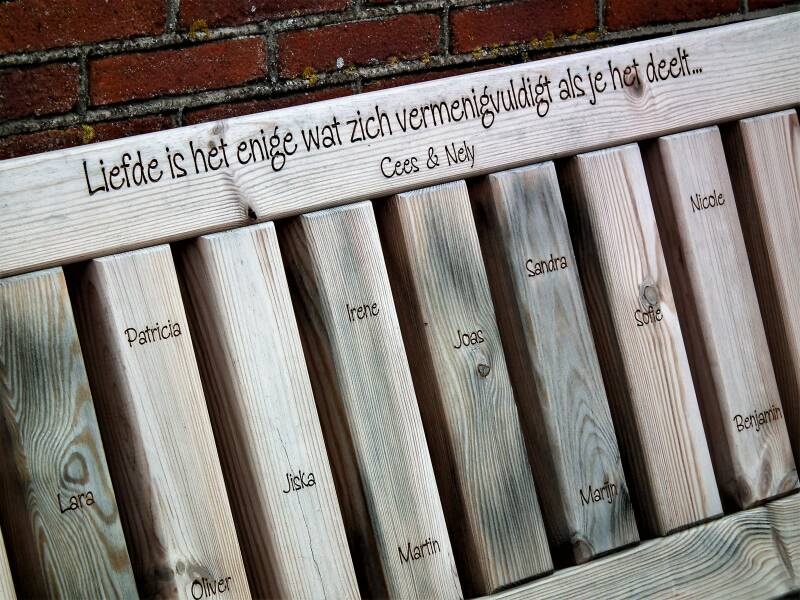 Liefde is het enige wat zich vermenigvuldigt als je het deelt...
Cees & Nely
Lara
Patricia
Oliver
Jiska
Irene
Martin
Joas
Sandra
Marijn
Sofie
Nicole
Benjamin